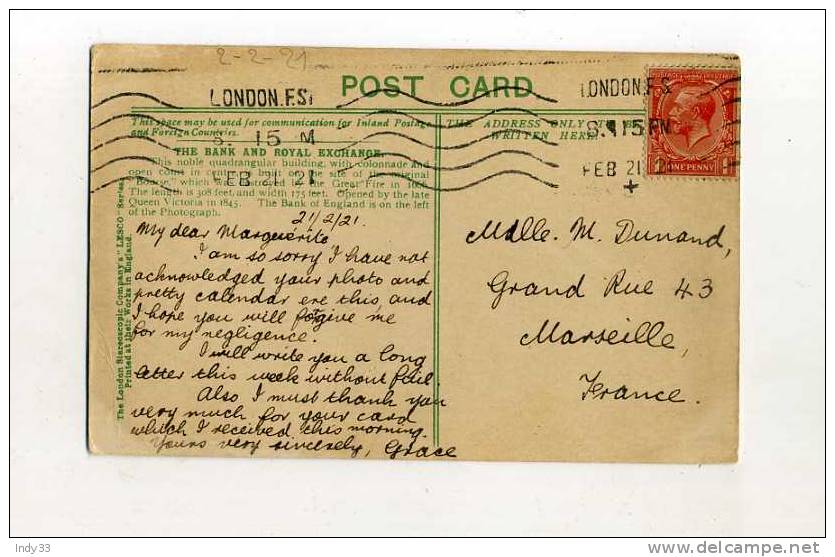 2-2-21
POST CARD
LONDON. F.S
8. 15 PM
FEB 21 21
LONDON. F.S
8. 15 PM
FEB 21
ONE PENNY
This space may be used for communication for Inland Postage
and Foreign Countries.
THE ADDRESS ONLY
WRITTEN HERE
THE BANK AND ROYAL EXCHANGE.
This noble quadrangular building, with colonnade and
open court in centre, is built on the site of the original
"Bourse," which was destroyed in the Great Fire in 1666.
The length is 308 feet, and width 175 feet. Opened by the late
Queen Victoria in 1845. The Bank of England is on the left
of the Photograph.
The London Stereoscopic Company's "LESCO" Series.
Printed at their Works in England.
21/2/21.
My dear Marguérite
I am so sorry I have not
acknowledged your photo and
pretty calendar ere this, and
I hope you will forgive me
for my negligence.
I will write you a long
letter this week without fail.
Also I must thank you
very much for your card
which I received this morning.
Yours very sincerely, Grace
Mdlle. M. Dunand,
Grand Rue 43
Marseille,
France.
Indy33
http://www.delcampe.net